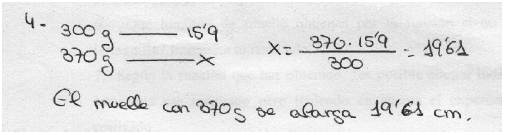 4- 300 g —— 15'9
370 g —— x x = 370 · 15'9 / 300 = 19'61
El muelle con 370 g se alarga 19'61 cm.